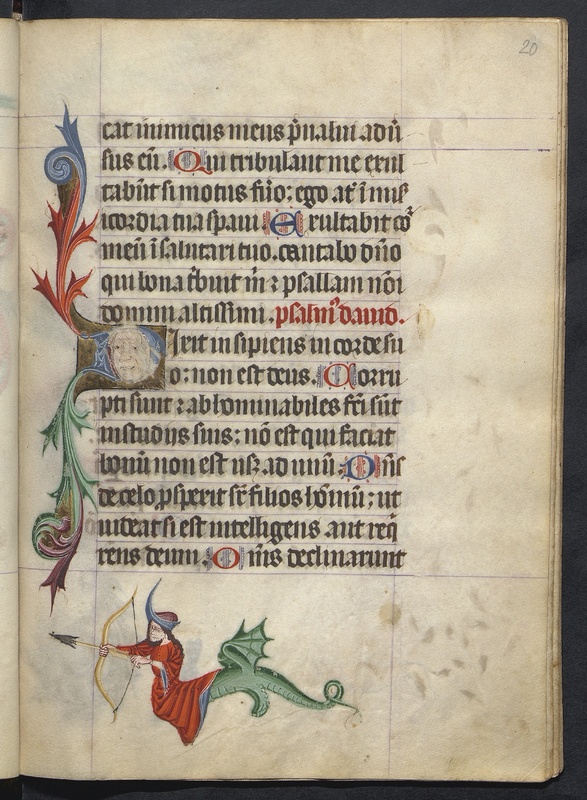 20
cat inimicus meus p̄ualui adū
sus eū. Qui tribulant me exul
tabūt si motus fūo; ego at̄ ī mis̄
icordia tua spaui. Exultabit cō
meū ī salutari tuo. cantabo dn̄o
qui bona t̄buit m̄ ⁊ psallam nōi
domini altissimi. psalm᷒ dauid.
Dixit insipiens in corde su
o; non est deus. Corru
pti sunt ⁊ abhominabiles fc̄i sūt
in studijs suis; nō est qui faciat
bonū non est usꝫ ad unū. Dn̄s
de celo ꝓsperit sr̄ filios hōmū; ut
uideat si est intelligens aut req̄
rens deum. Om̄s declinarunt